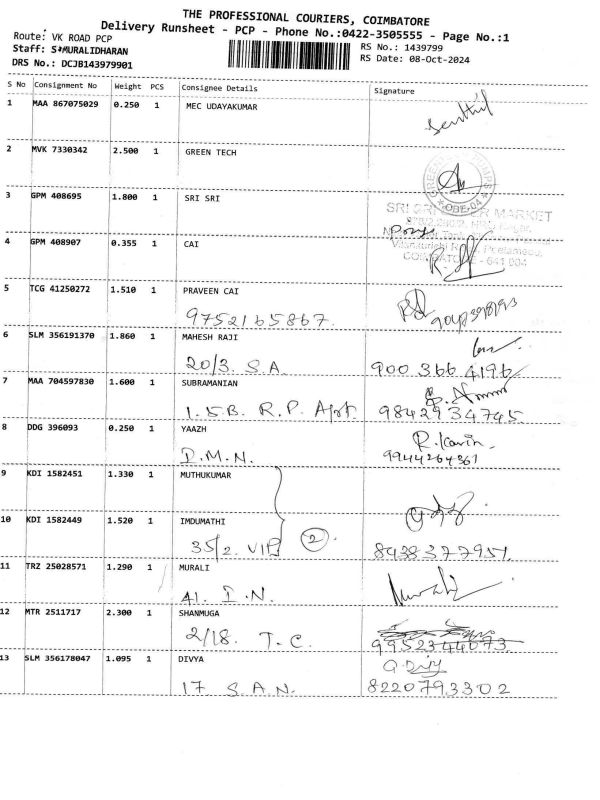 THE PROFESSIONAL COURIERS, COIMBATORE
Delivery Runsheet - PCP - Phone No.:0422-3505555 - Page No.:1
Route: VK ROAD PCP
RS No.: 1439799
Staff: S*MURALIDHARAN
RS Date: 08-Oct-2024
DRS No.: DCJB143979901
S No Consignment No Weight PCS Consignee Details Signature
1 MAA 867075029 0.250 1 MEC UDAYAKUMAR
Senthil
2 MVK 7330342 2.500 1 GREEN TECH
CBE-04
3 GPM 408695 1.800 1 SRI SRI
SRI MARKET
4 GPM 408907 0.355 1 CAI
Vilankurichi Peelamedu,
- 641 004
5 TCG 41250272 1.510 1 PRAVEEN CAI
9752165867.
6 SLM 356191370 1.860 1 MAHESH RAJI
20/3. S.A. 900 366 4196
7 MAA 704597830 1.600 1 SUBRAMANIAN
1.5B. R.P. Apt. 9842934745
8 DDG 396093 0.250 1 YAAZH
R.Kavin
D.M.N. 9944264361
9 KDI 1582451 1.330 1 MUTHUKUMAR
10 KDI 1582449 1.520 1 IMDUMATHI
35/2. VIP 2 8438377951.
11 TRZ 25028571 1.290 1 MURALI
Murali
41. D.N.
12 MTR 2511717 2.300 1 SHANMUGA
2/18. T.C. 9952344073.
13 SLM 356178047 1.095 1 DIVYA
17 S.A.N. 8220793302